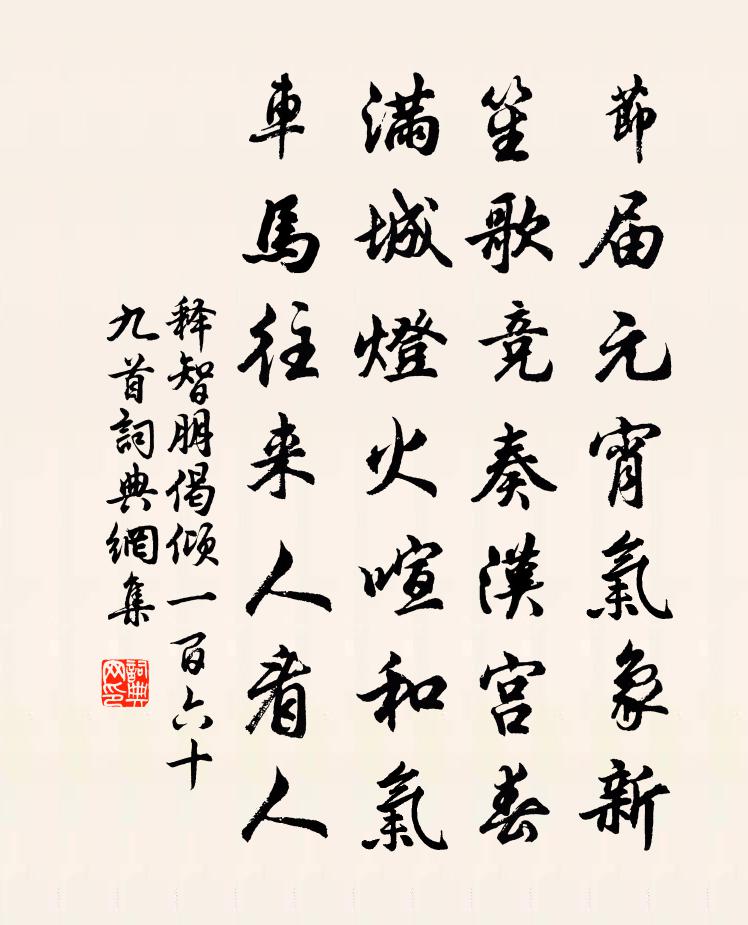 節届元宵氣象新
笙歌竞奏漢宫春
滿城燈火喧和氣
車馬往来人看人
释智朋偈傾一百六十
九首詞典網集
詞典網印